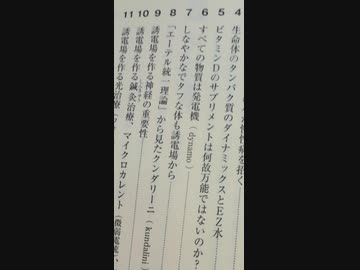 4 生命体のタンパク質のダイナミックスとEZ水
5 ビタミンDのサプリメントは何故万能ではないのか?
6 すべての物質は発電機(dynamo)
7 しなやかでタフな体も誘電場から
8 「エーテル統一理論」から見たクンダリーニ(kundalini)
9 誘電場を作る神経の重要性
10 誘電場を作る鍼灸治療、マイクロカレント(微弱電流)、
11 誘電場を作る光治療